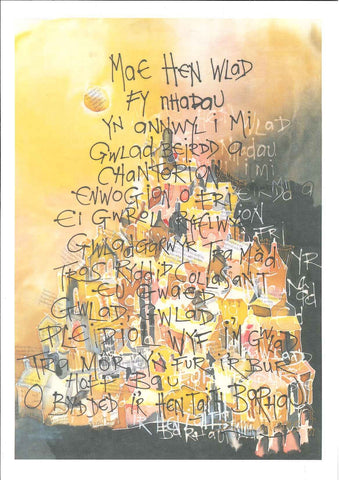 MAE HEN WLAD
FY NHADAU
YN ANNWYL I MI
GWLAD BEIRDD A
CHANTORION
ENWOGION O FRI
EI GWROL RHELWYR
GWLADGARWYR TRA MAD
TROS RYDDID COLLASANT
EU GWAED
GWLAD, GWLAD
PLEIDIOL WYF I'M GWLAD
TRA MOR YN FUR I'R BUR
HOFF BAU
O BYDDED I'R HEN IAITH BARHAU